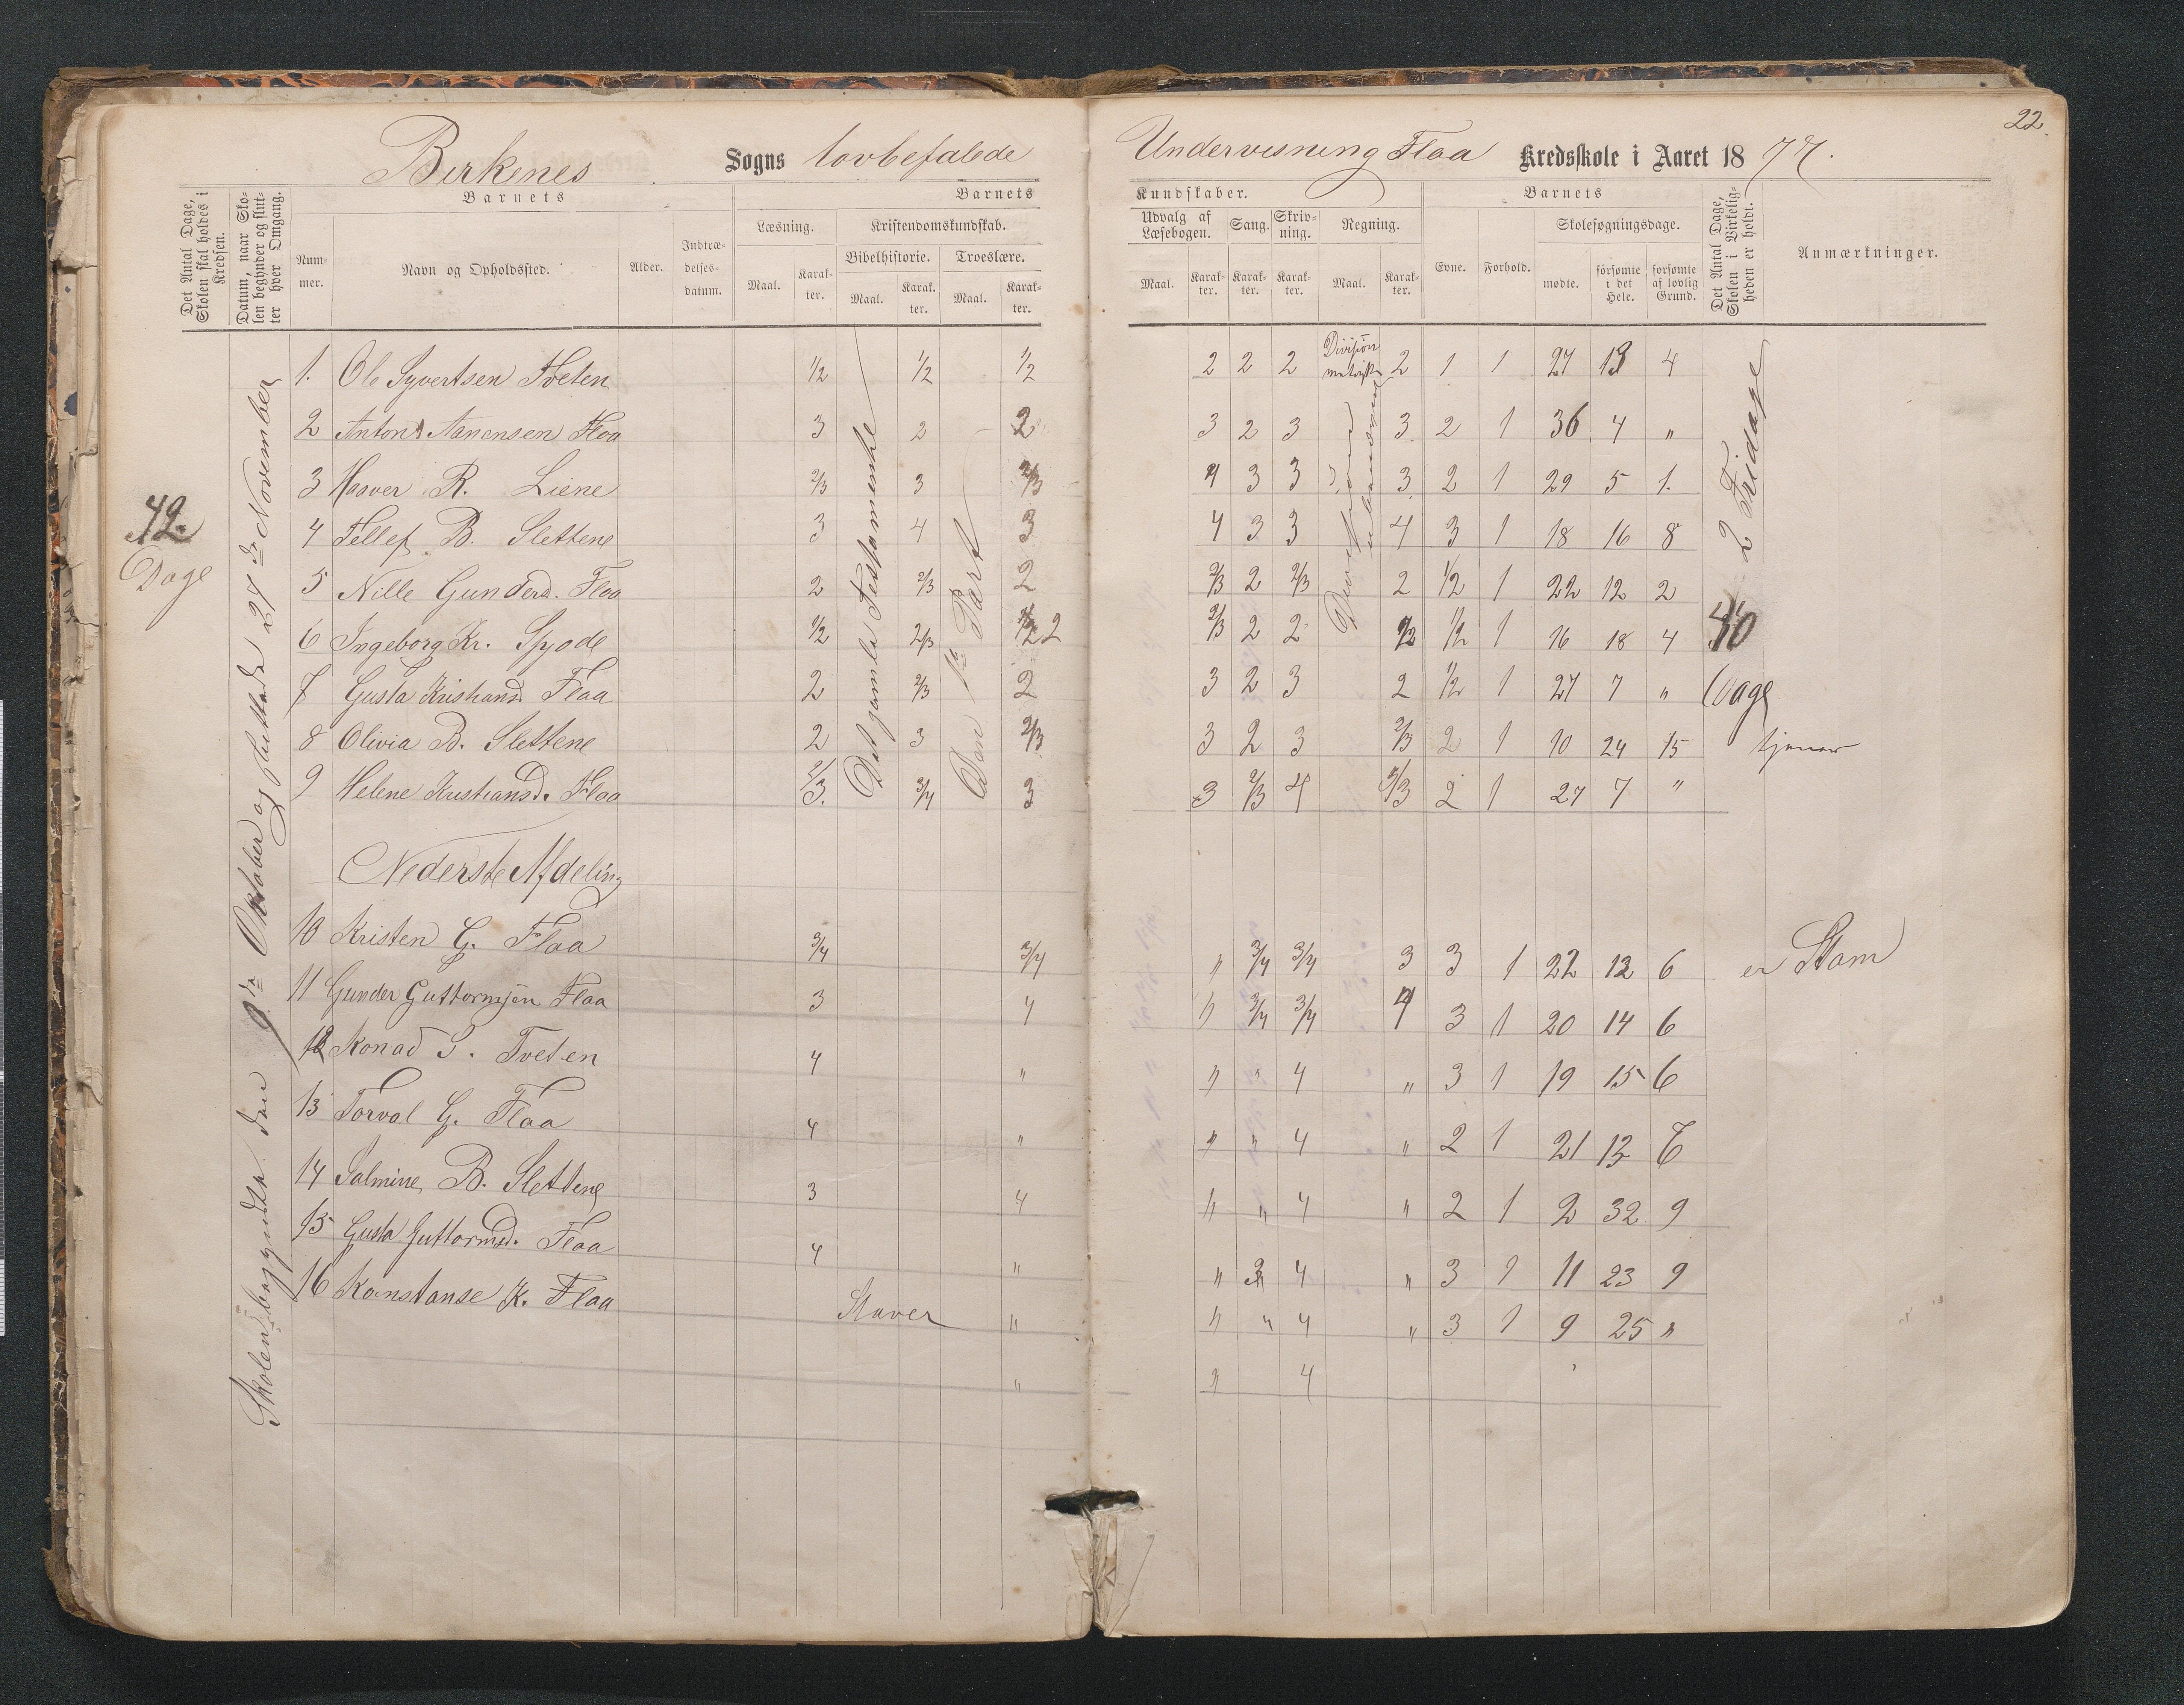 22.
Birkenes Sogns lovbefalede Undervisning Flaa Kredsskole i Aaret 1877.
Det Antal Dage, Skolen skal holdes i Kredsen.
Datum, naar Skolen begynder og slutter hver Omgang.
Barnets
Nummer.
Navn og Opholdssted.
Alder.
Indtrædelsesdatum.
Barnets
Læsning.
Maal.
Karakter.
Kristendomskundskab.
Bibelhistorie.
Maal.
Karakter.
Troeslære.
Maal.
Karakter.
Kundskaber.
Udvalg af Læsebogen.
Maal.
Karakter.
Sang.
Karakter.
Skrivning.
Karakter.
Regning.
Maal.
Karakter.
Barnets
Evne.
Forhold.
Skolesøgningsdage.
mødte.
forsømte i det Hele.
forsømte af lovlig Grund.
Det Antal Dage, Skolen i Virkeligheden er holdt.
Anmærkninger.
42
Dage
Skolen begyndte den 9de Oktober og sluttede 27de November
Det gamle Testamente
Den 1ste Part
Division
2 Fridage
40
Dage
1. Ole Syvertsen Tveten 1/2 1/2 1/2 2 2 2 2 1 1 27 13 4
2 Anton Aanensen Flaa 3 2 2 3 2 3 3 2 1 36 4 "
3 Haaver R. Liene 2/3 3 2/3 4 3 3 3 2 1 29 5 1.
4 Tellef B. Slettene 3 4 3 4 3 3 4 3 1 18 16 8
5 Nille Gunderd. Flaa 2 2/3 2 2/3 2 2/3 2 1/2 1 22 12 2
6 Ingeborg Kr. 1/2 2/3 2 2/3 2 2 1/2 1/2 1 16 18 4
7 Gusta Kristiansd. Flaa 2 2/3 2 3 2 3 2 1/2 1 27 7 "
8 Olivia B. Slettene 2 3 2/3 3 2 3 2/3 2 1 10 24 15 tjener
9 Helene Kristiansd. Flaa 2/3. 3/4 3 3 2/3 4 2/3 2 1 27 7 "
Nederste Afdeling
10 Kristen G. Flaa 3/4 3/4 " 3/4 3/4 3 3 1 22 12 6 er Stam
11 Gunder Guttormsen Flaa 3 4 " 3/4 3/4 4 3 1 20 14 6
12 Konad S. Tveten 4 " " " 4 " 3 1 19 15 6
13 Torval G. Flaa 4 " " " 4 " 2 1 21 13 7
14 Salmine B. Slettene 3 4 " " 4 " 2 1 2 32 9
15 Gusta Guttormsd. Flaa 4 " " 4 " 3 1 11 23 9
16 Konstanse K. Flaa Staver " " " 4 " 3 1 9 25 "
" " 4